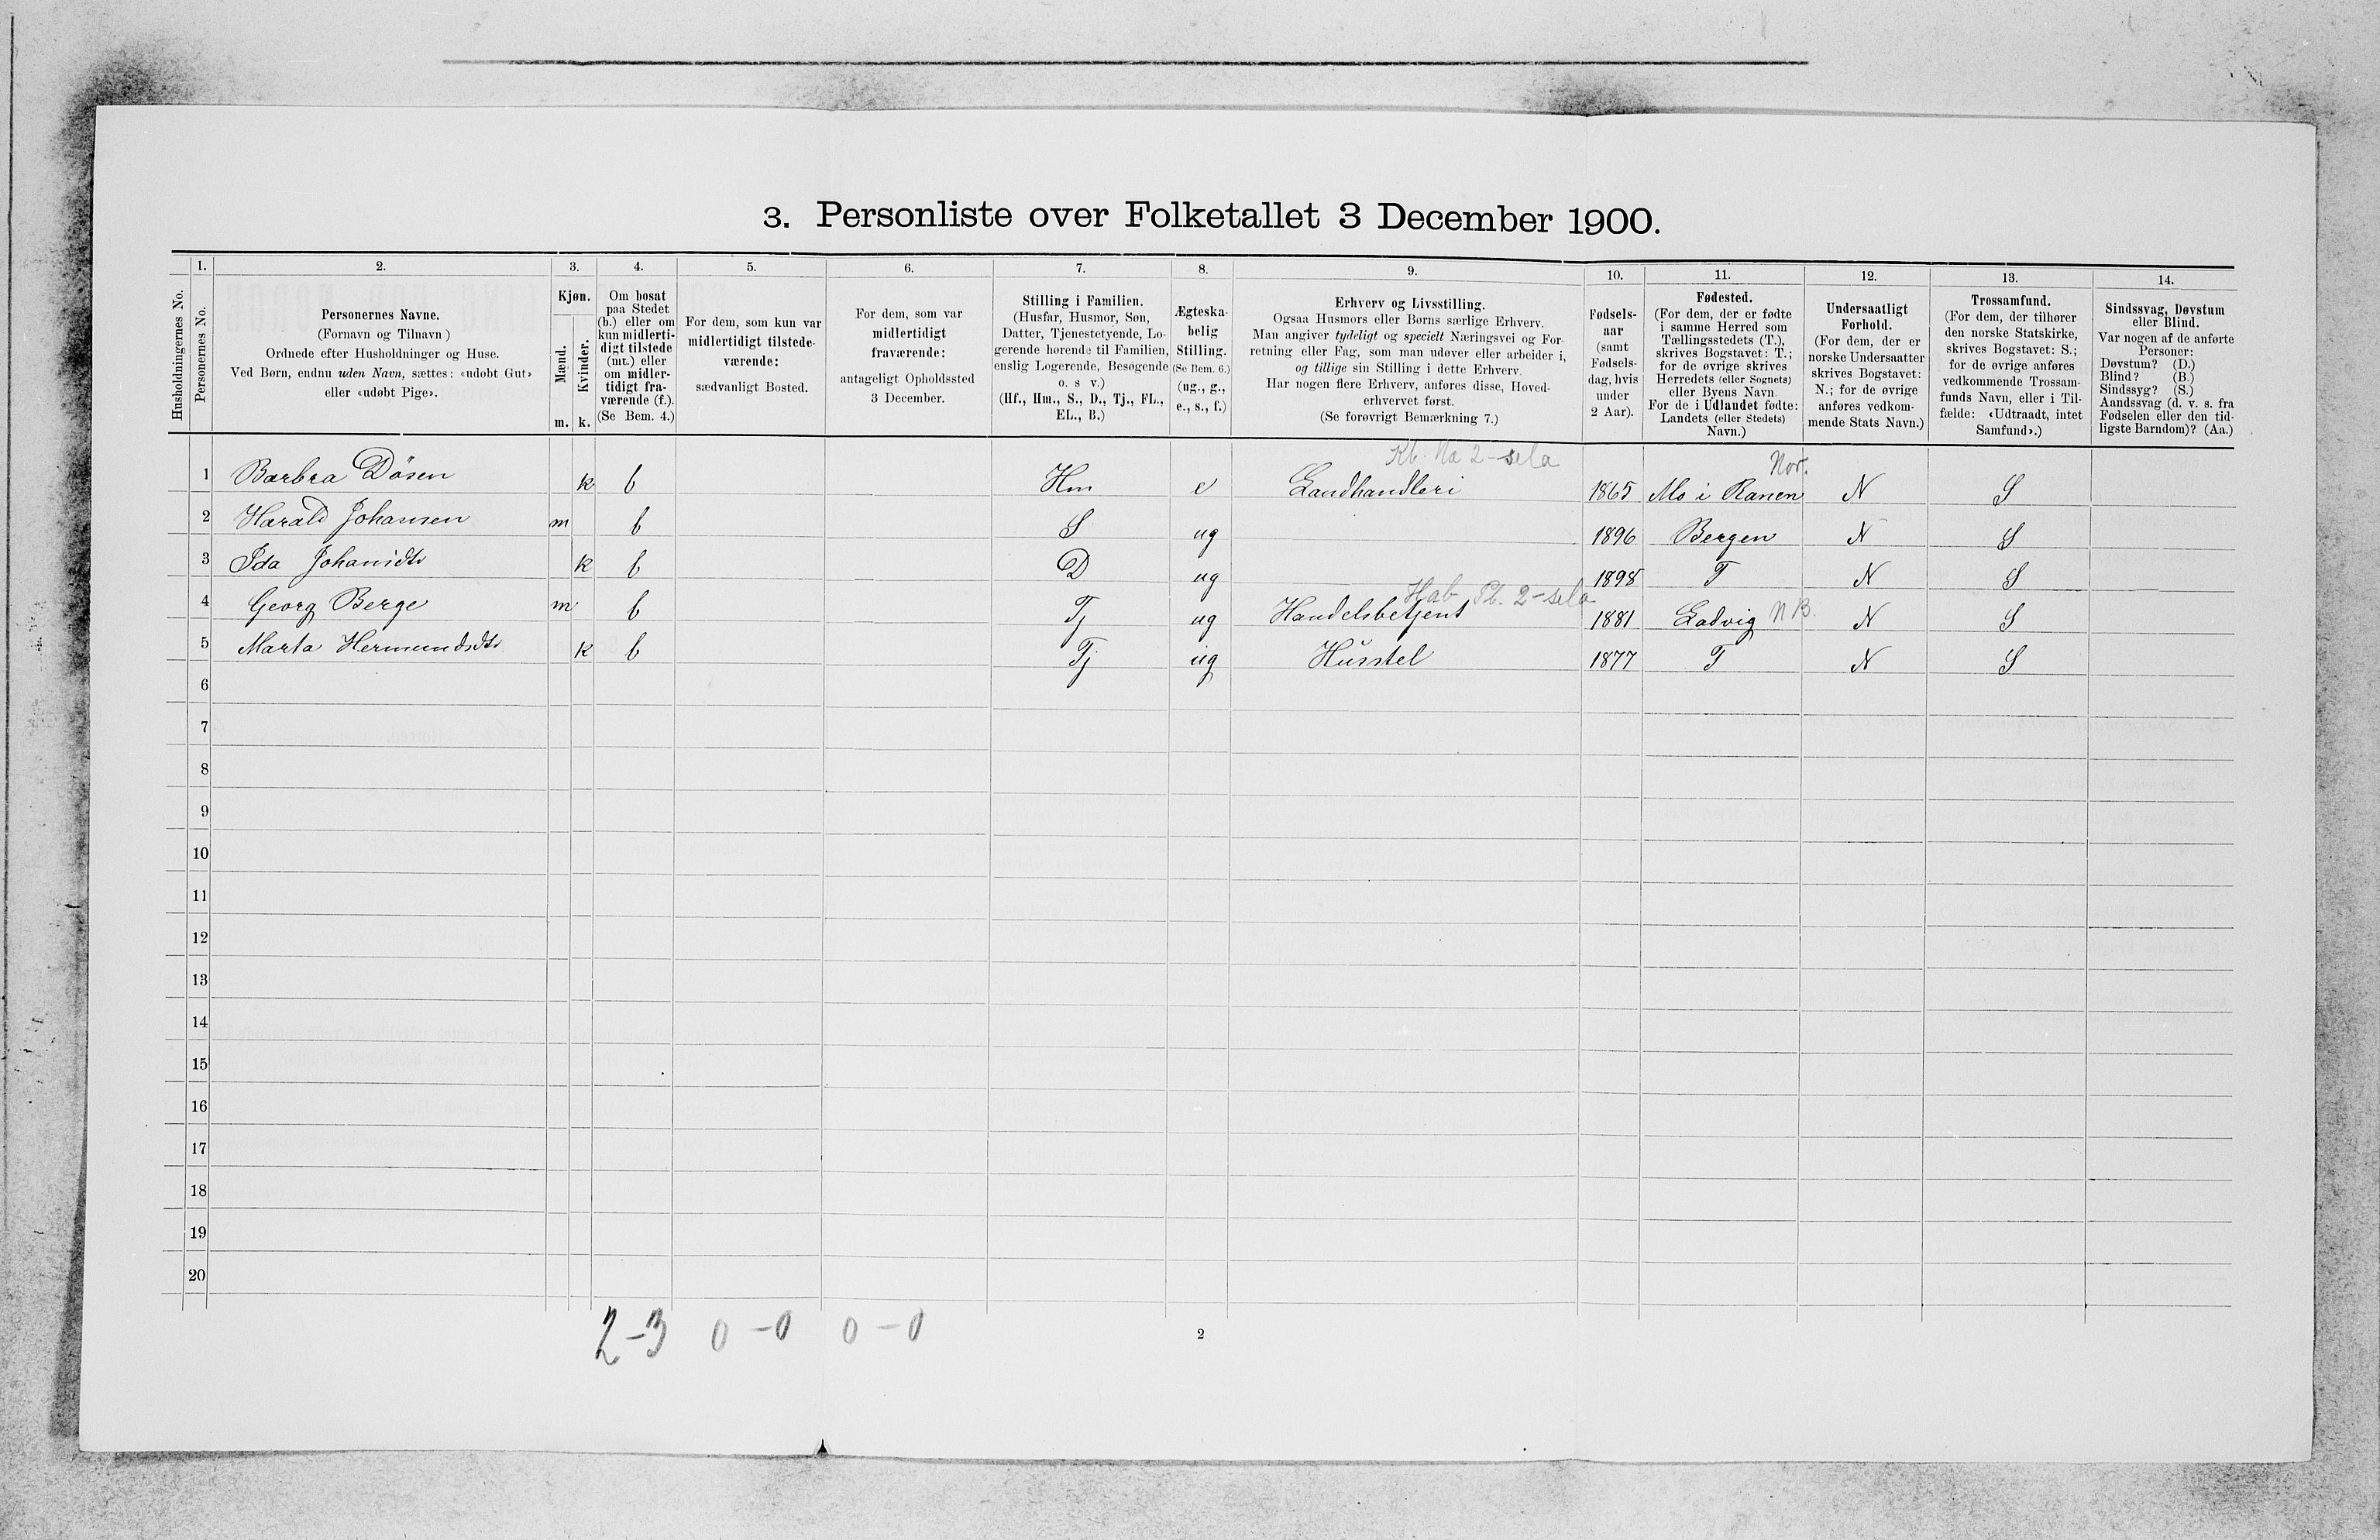 3. Personliste over Folketallet 3 December 1900.
Husholdningernes No.
1.
Personernes No.
2.
Personernes Navne.
(Fornavn og Tilnavn)
Ordnede efter Husholdninger og Huse.
Ved Børn, endnu uden Navn, sættes: «udøbt Gut»
eller «udøbt Pige».
3.
Kjøn.
Mænd.
Kvinder.
m. k.
4.
Om bosat
paa Stedet
(b.) eller om
kun midlerti-
digt tilstede
(mt.) eller
om midler-
tidigt fra-
værende (f.).
(Se Bem. 4.)
5.
For dem, som kun var
midlertidigt tilstede-
værende:
sædvanligt Bosted.
6.
For dem, som var
midlertidigt
fraværende:
antageligt Opholdssted
3 December.
7.
Stilling i Familien.
(Husfar, Husmor, Søn,
Datter, Tjenestetyende, Lo-
gerende hørende til Familien,
enslig Logerende, Besøgende
o. s v.)
(Hf., Hm., S., D., Tj., FL.,
EL., B.)
8.
Ægteska-
belig
Stilling.
(Se Bem. 6.)
(ug., g.,
e., s., f.)
9.
Erhverv og Livsstilling.
Ogsaa Husmors eller Børns særlige Erhverv.
Man angiver tydeligt og specielt Næringsvei og For-
retning eller Fag, som man udøver eller arbeider i,
og tillige sin Stilling i dette Erhverv.
Har nogen flere Erhverv, anføres disse, Hoved-
erhvervet først.
(Se forøvrigt Bemærkning 7.)
10.
Fødsels-
aar
(samt
Fødsels-
dag, hvis
under
2 Aar).
11.
Fødested.
(For dem, der er fødte
i samme Herred som
Tællingsstedets (T.),
skrives Bogstavet: T.;
for de øvrige skrives
Herredets (eller Sognets)
eller Byens Navn.
For de i Udlandet fødte:
Landets (eller Stedets)
Navn.)
12.
Undersaatligt
Forhold.
(For dem, der er
norske Undersaatter
skrives Bogstavet:
N.; for de øvrige
anføres vedkom-
mende Stats Navn.)
13.
Trossamfund.
(For dem, der tilhører
den norske Statskirke,
skrives Bogstavet: S.;
for de øvrige anføres
vedkommende Trossam-
funds Navn, eller i Til-
fælde: «Udtraadt, intet
Samfund».)
14.
Sindssvag, Døvstum
eller Blind.
Var nogen af de anførte
Personer:
Døvstum? (D.)
Blind? (B.)
Sindssyg? (S.)
Aandssvag (d. v. s. fra
Fødselen eller den tid-
ligste Barndom)? (Aa.)
2-sela Nor.
1 Barbra Dösen k b Hm e Landhandleri 1865 Mo i Ranen N S
2 Harald Johansen m b S ug 1896 Bergen N S
3 Ida Johansdtr k b D ug 1898 T N S
2-sela
4 Georg Berge m b Tj ug Handelsbetjent 1881 Ladvig NB. N S
5 Marta Hermundsdtr k b Tj ug Husstel 1877 T N S
6
7
8
9
10
11
12
13
14
15
16
17
18
19
20
2-3 0-0 0-0
2